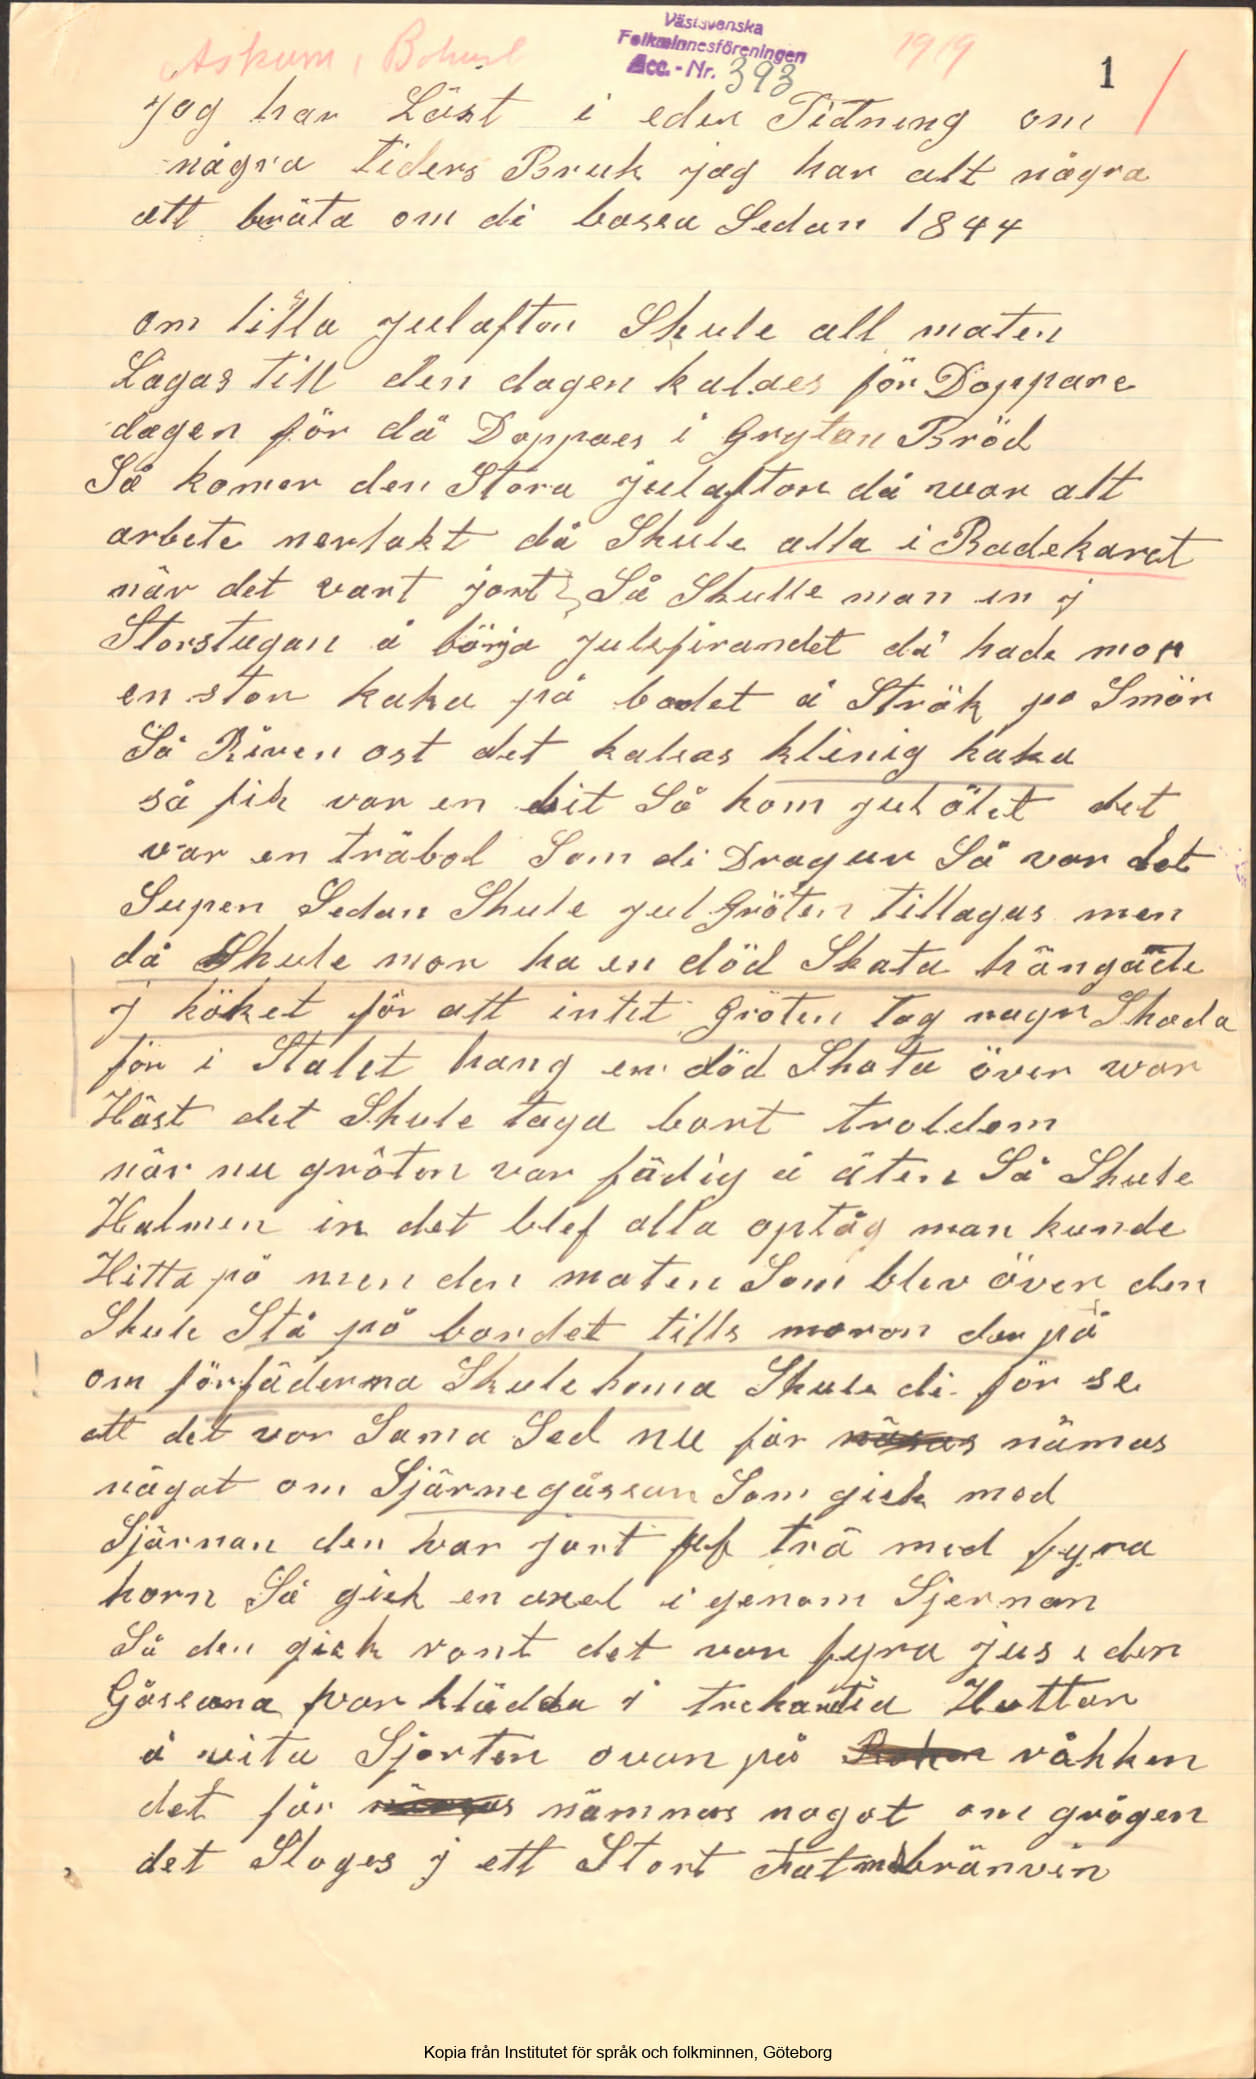 Askum, Bohusl
Västsvenska
Folkminnesföreningen
Acc.-Nr. 393
1919
1
Jog har Läst i eder Tidning om
några tiders Bruk jag har alt några
att beräta om di bassa Sedan 1844
om lilla Julafton Skule all maten
Lagas till den dagen kaldes för Doppare
dagen för då Doppaes i Grytan Bröd
Så komer den Stora Julafton då war alt
arbete nerlakt då Skule alla i Badekaret
när det vart jort Så Skulle man in j
Storstugan å börja Julefirandet då hade mor
en stor kaka på bodet å Sträk po Smör
Så Riven ost det kalsas klinig kaka
så fik var en bit Så kom jul ölet det
var en träbol Som di Dragur Så var det
Supen Sedan Skule jul Gröten tillagas men
då Skule mor ha en död Skata hängade
j köket för att intet Gröten tog nagr Skada
för i Stalet hang en död Skata över war
Häst det Skule taga bort troldom
när nu gröten var fädig å äten Så Skule
Halmen in det blef alla optåg man kunde
Hitta på men den maten Som blev över den
Skule Stå på bordet tills moron der på
om förfäderna Skule koma Skule di för se
att det var Sama Sed nu får nämas
något om Sjärnegåssan Som gick med
Sjärnan den var jort af trä med fyra
horn Så gick en axel i genom Sjernan
Så den gick ront det var fyra jus i den
Gåssana var klädda i trekantia Hattar
å vita Sjortor ovan på råkken
det får nämnas nogot om grögen
det Sloges j ett Stort Fat med bränvin
Kopia från Institutet för språk och folkminnen, Göteborg